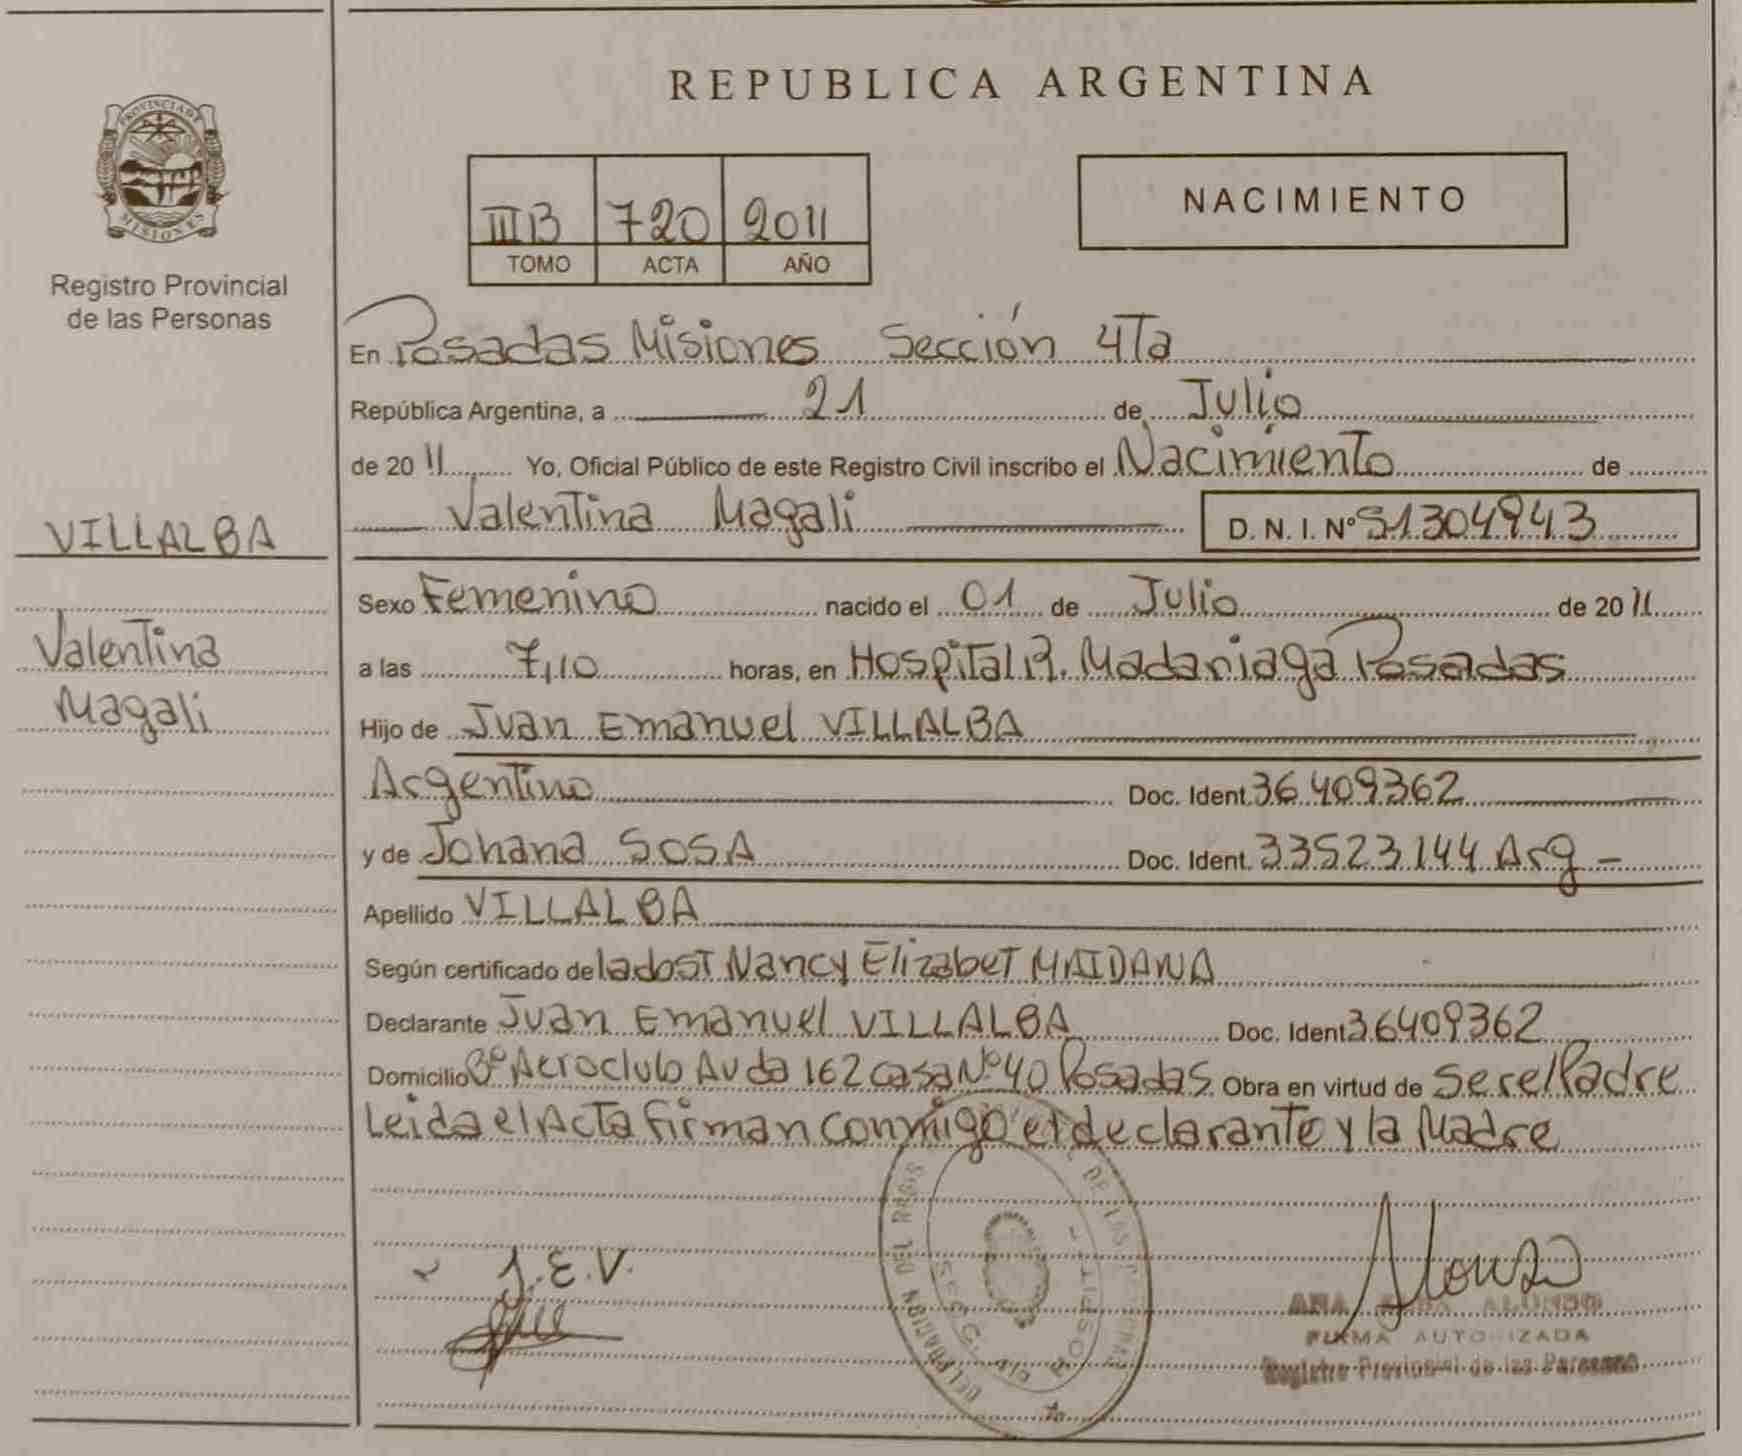 REPUBLICA ARGENTINA
PROVINCIA DE
MISIONES
Registro Provincial
de las Personas
IIIB 720 2011
TOMO ACTA AÑO
NACIMIENTO
En Posadas Misiones Sección 4Ta
República Argentina, a 21 de Julio
de 2011 Yo, Oficial Público de este Registro Civil inscribo el Nacimiento de
Valentina Magali D. N. I. Nº 51304943
VILLALBA
Valentina
Magali
Sexo Femenino nacido el 01 de Julio de 2011
a las 7,10 horas, en Hospital R. Madariaga Posadas
Hijo de Juan Emanuel VILLALBA
Argentino Doc. Ident. 36409362
y de Johana SOSA Doc. Ident. 33523144 Arg -
Apellido VILLALBA
Según certificado de la obst Nancy Elizabet MAIDANA
Declarante Juan Emanuel VILLALBA Doc. Ident 36409362
Domicilio Bº Aeroclub Avda 162 casa Nº 40 Posadas. Obra en virtud de ser el Padre
Leida el Acta firman conmigo el declarante y la Madre
J.E.V.
Alonso
ANA ALONSO
FIRMA AUTORIZADA
Registro Provincial de las Personas